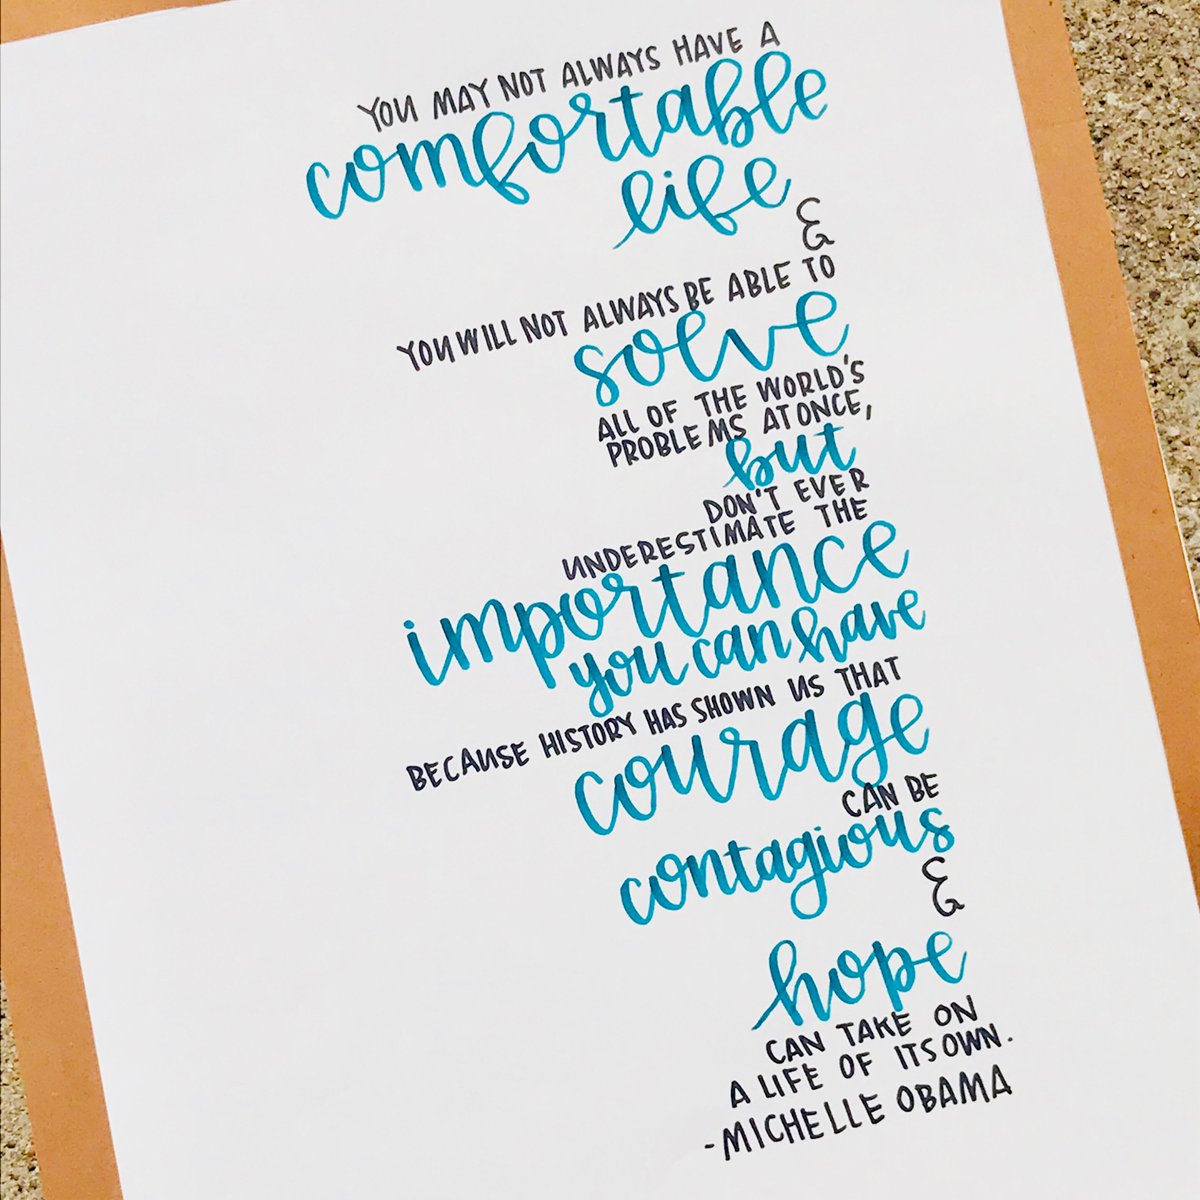 YOU MAY NOT ALWAYS HAVE A
comfortable
life
&
YOU WILL NOT ALWAYS BE ABLE TO
solve
ALL OF THE WORLD'S
PROBLEMS AT ONCE,
but
DON'T EVER
UNDERESTIMATE THE
importance
you can have
BECAUSE HISTORY HAS SHOWN US THAT
courage
CAN BE
contagious
&
hope
CAN TAKE ON
A LIFE OF ITS OWN.
-MICHELLE OBAMA